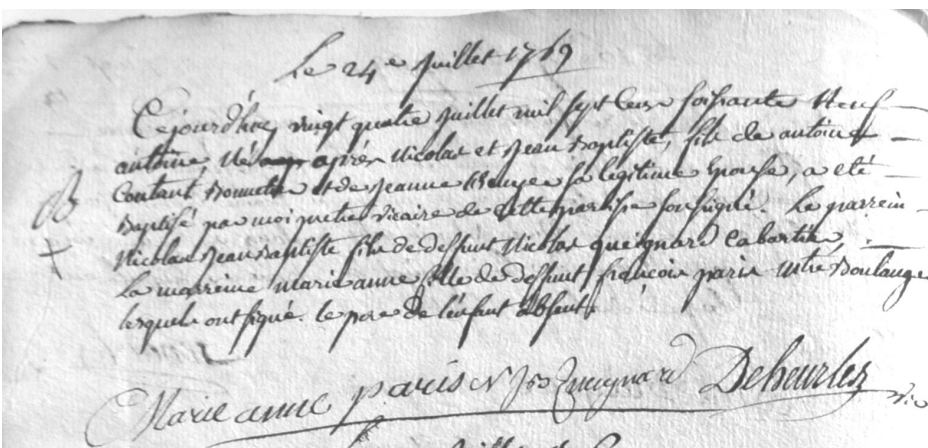 Le 24e Juillet 1769
Cejourdhuy vingt quatre Juillet mil Sept Cens soissante Neuf
antoine, Né après Nicolas et Jean Baptiste, fils de antoine
Contant Bonnetier et de Jeanne sa legitime Epouse, a été
Baptisé par moi pretre vicaire de Cette paroisse soussigné. Le parrein
Nicolas Jean Baptiste fils de deffunt Nicolas queignard Cabartier,
La marreine marie anne fille de deffunt françois paris Mtre Boulanger
lesquels ont signé. le pere de l'enfant absent.
B
Marie anne paris N J B queignard Deheurles
vic